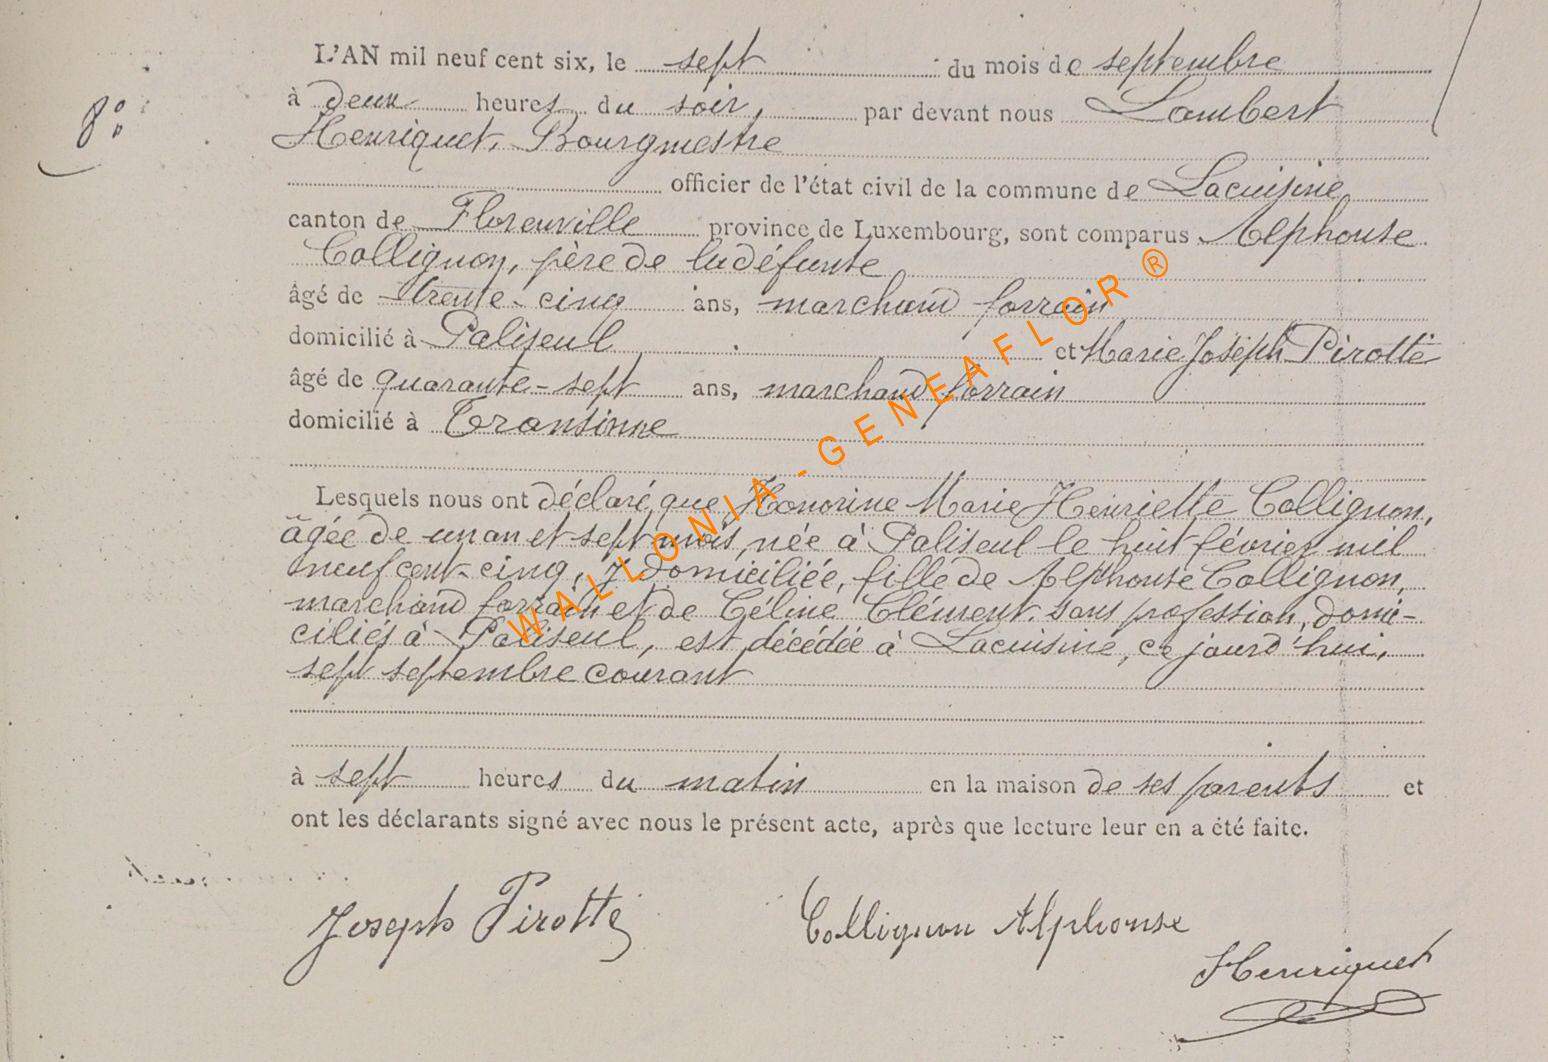 L'AN mil neuf cent six, le sept du mois de septembre
8:
à deux heures du soir, par devant nous Lambert
Henriquet, Bourgmestre
officier de l'état civil de la commune de Lacuisine
canton de Florenville province de Luxembourg, sont comparus Alphonse
Collignon, père de la défunte
âgé de trente-cinq ans, marchand forrain
domicilié à Paliseul et Marie Joseph Pirotte
âgé de quarante-sept ans, marchand forrain
domicilié à Transinne
Lesquels nous ont déclaré que Honorine Marie Henriette Collignon,
âgée de un an et sept mois, née à Paliseul le huit février mil
neuf cent-cinq, y domiciliée, fille de Alphonse Collignon,
marchand forrain et de Céline Clément. sans profession, domi-
ciliés à Paliseul, est décédée à Lacuisine, ce jourd'hui,
sept septembre courant
à sept heures du matin en la maison de ses parents et
ont les déclarants signé avec nous le présent acte, après que lecture leur en a été faite.
Joseph Pirotte Collignon Alphonse
Henriquet
WALLONIA-GENEAFLOR ®